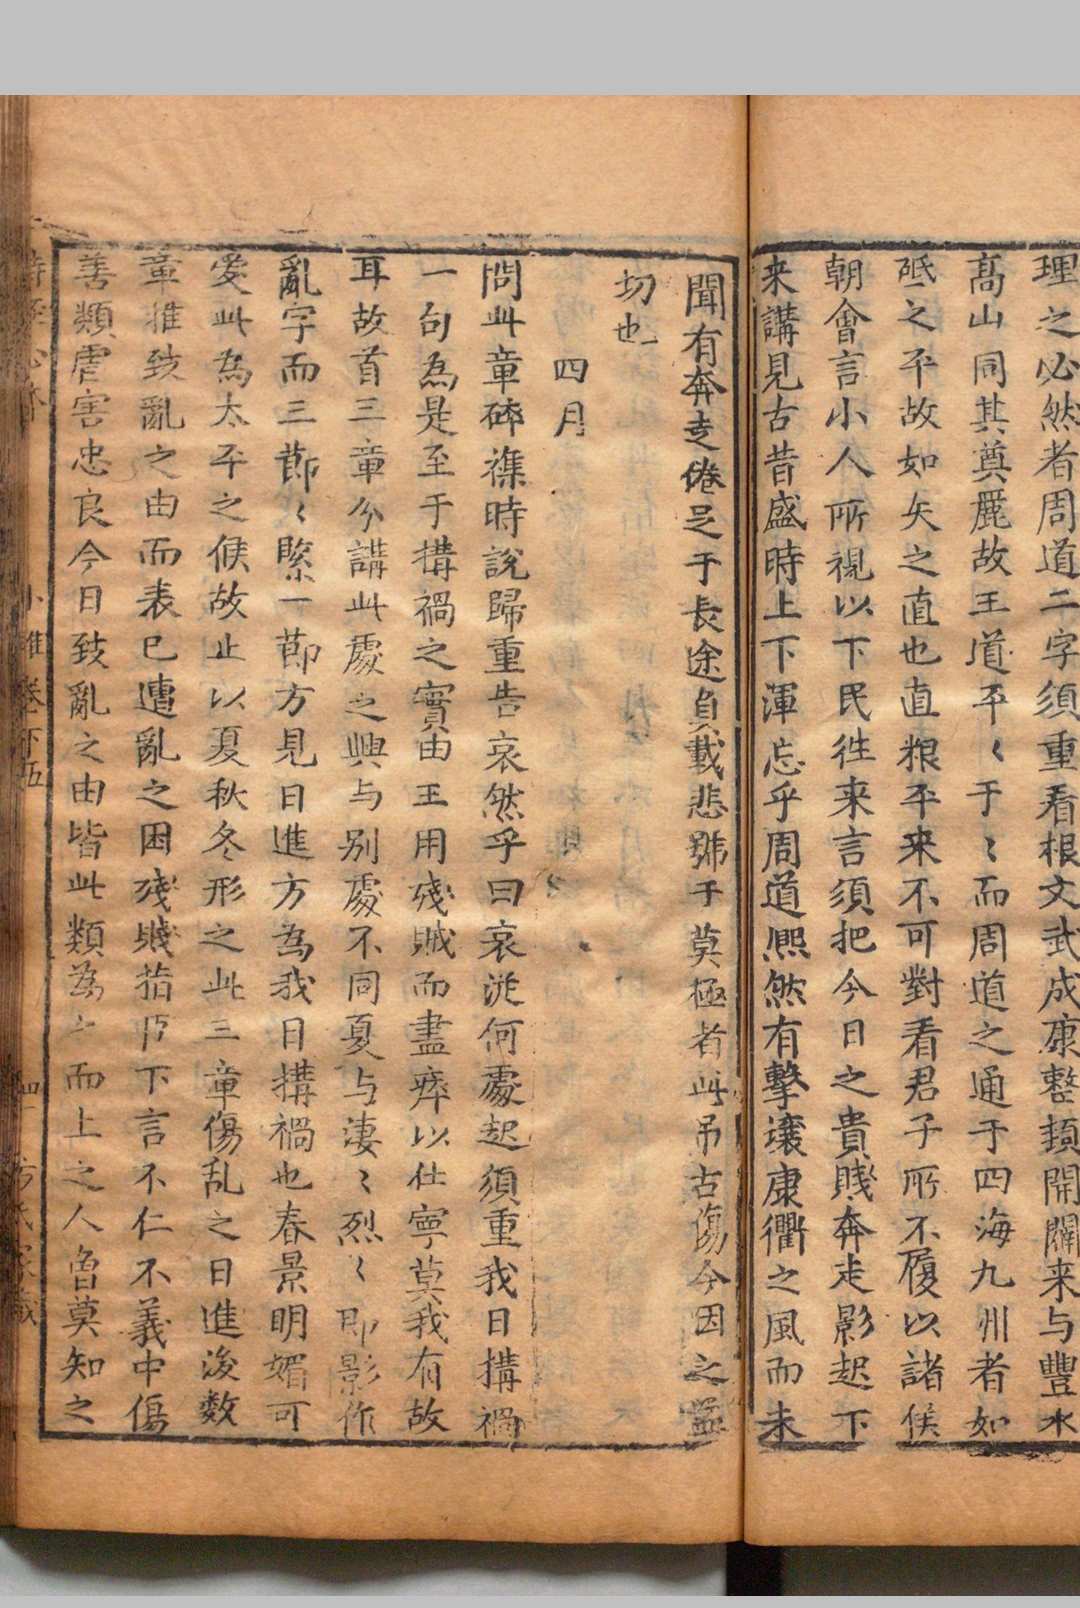 理之必然者周道二字須重看根文武成康整頓開闢来与豐水
髙山同其奠麗故王道平〻于〻而周道之通于四海九州者如
砥之平故如矢之直也直根平来不可對看君子所不履以諸侯
朝會言小人所視以下民徃来言須把今日之貴賤奔走影起下
来講見古昔盛時上下渾忘乎周道熈然有擊壤康衢之風而未
聞有奔走倦足于長途負載悲號于莫極者此吊古傷今因之益
切也
四月
問此章碎襍時說歸重告哀然乎曰哀從何處起須重我日搆禍
一句為是至于搆禍之實由王用殘贼而盡瘁以仕寧莫我有故
耳故首三章分講此處之興与别處不同夏与淒〻烈〻即影作
亂字而三節〻縶一節方見日進方為我日搆禍也春景明媚可
愛此為太平之候故止以夏秋冬形之此三章傷乱之日進後数
章推致亂之由而表已遭亂之困殘賤指 下言不仁不義中傷
善類虐害忠良今日致亂之由皆此類為之而上之人曾莫知之
小雅卷下五